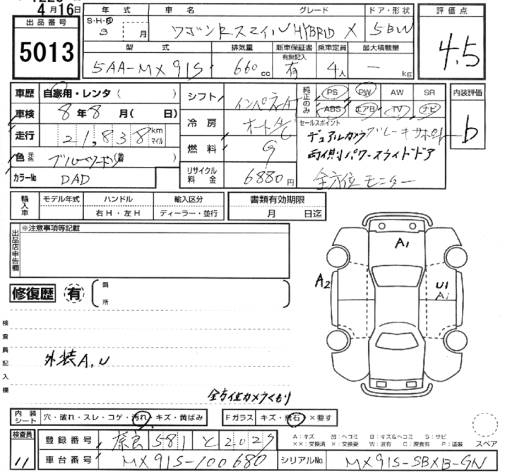 4月16日
出品番号
5013
年式 車名 グレード ドア・形状
S・H・R 3 月 ワゴンRスマイルHYBRID X 5BW
型式 排気量 新車保証書 有無記入 乗車定員 最大積載量
5AA-MX91S 660cc 有 4人 - kg
評価点
4.5
車歴 自家用・レンタ( )
車検 8年8月( 日)
走行 21,838 km マイル
色 元色 ( 替)
カラーNo DAD
シフト インパネA
冷房 オートA/C
燃料 G
リサイクル料金 6880円
純正のみ PS PW AW SR
ABS エアB TV ナビ
セールスポイント
デュアルカメラブレーキサポート
両側パワースライドドア
全方位モニター
内装評価
b
輸入車 モデル年式 ハンドル 輸入区分
右H・左H ディーラー・並行
書類有効期限
月 日迄
出品店申告欄
※注意事項等記載
修復歴 有 個所
検査員記入欄
外装A,U
全方位カメラくもり
A1
A2
U1
A1
内装シート 穴・破れ・スレ・コゲ・汚れ・キズ・黄ばみ
Fガラス キズ・飛石・×要す
検査員
11
登録番号 奈良 581 と 2027
車台番号 MX91S-100680
シリアルNo MX91S-SBXB-GN
スペア